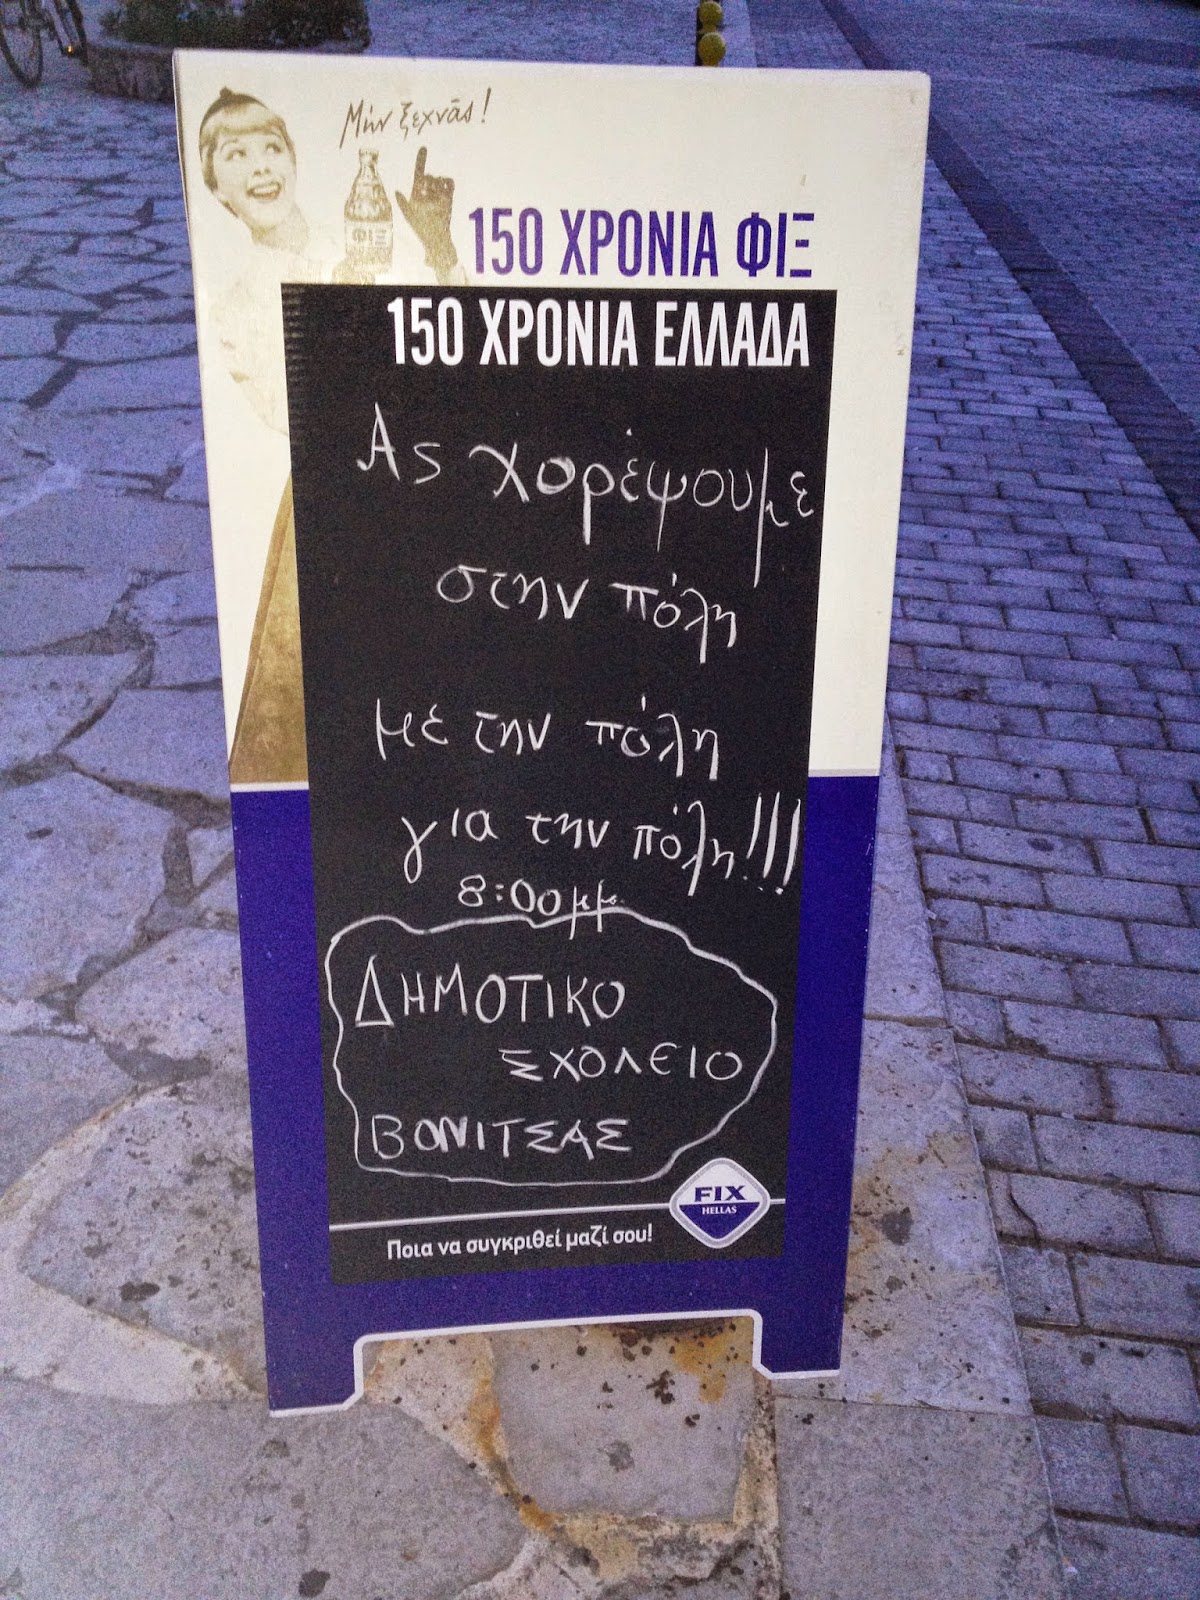 Μήν ξεχνᾶς!
ΦΙΞ
150 ΧΡΟΝΙΑ ΦΙΞ
150 ΧΡΟΝΙΑ ΕΛΛΑΔΑ
Ας χορέψουμε
στην πόλη
με την πόλη
για την πόλη!!!
8:00μμ.
ΔΗΜΟΤΙΚΟ
ΣΧΟΛΕΙΟ
ΒΟΝΙΤΣΑΣ
FIX
HELLAS
Ποια να συγκριθεί μαζί σου!